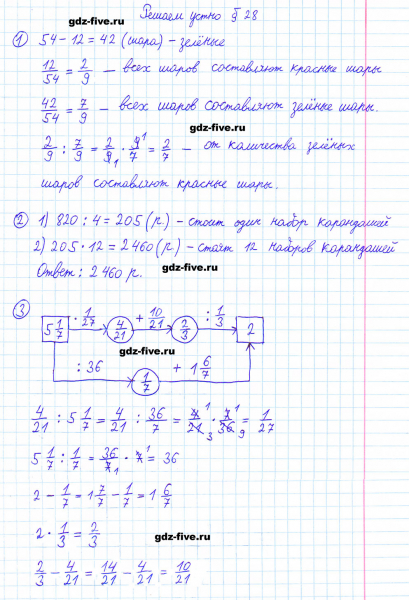 gdz-five.ru
Решаем устно § 28
① 54 - 12 = 42 (шара) - зелёные
12/54 = 2/9 - всех шаров составляют красные шары
gdz-five.ru
42/54 = 7/9 - всех шаров составляют зелёные шары.
gdz-five.ru
2/9 : 7/9 = 2/9₁ · 9¹/7 = 2/7 - от количества зелёных
шаров составляют красные шары.
② 1) 820 : 4 = 205 (р) - стоит один набор карандашей
2) 205 · 12 = 2460 (р) - стоят 12 наборов карандашей
Ответ: 2460 р.
gdz-five.ru
③ 5 1/7 · 1/27 4/21 + 10/21 2/3 : 1/3 2
gdz-five.ru
: 36 1/7 + 1 6/7
gdz-five.ru
4/21 : 5 1/7 = 4/21 : 36/7 = 4¹/21₃ · 7¹/36₉ = 1/27
5 1/7 : 1/7 = 36/7₁ · 7¹ = 36
gdz-five.ru
2 - 1/7 = 1 7/7 - 1/7 = 1 6/7
2 · 1/3 = 2/3
gdz-five.ru
2/3 - 4/21 = 14/21 - 4/21 = 10/21
gdz-five.ru